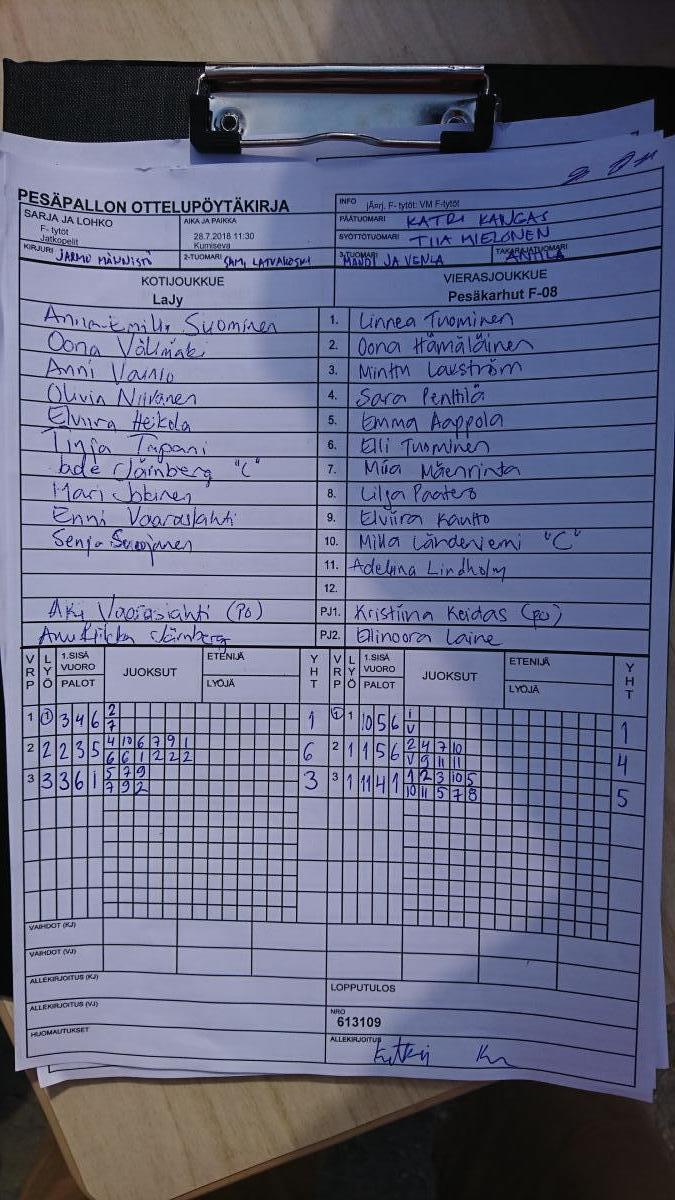 PESÄPALLON OTTELUPÖYTÄKIRJA
INFO jÄrj. F- tytöt: VM F-tytöt
SARJA JA LOHKO
F- tytöt
Jatkopelit
AIKA JA PAIKKA
28.7.2018 11:30
Kumiseva
PÄÄTUOMARI KATRI KANGAS
SYÖTTÖTUOMARI TIIA MIELONEN
KIRJURI JARMO MÄNNISTÖ
2-TUOMARI SAMI LATVAKOSKI
3-TUOMARI MANDI JA VENLA
TAKARAJATUOMARI ANTTILA
KOTIJOUKKUE
LaJy
VIERASJOUKKUE
Pesäkarhut F-08
Anna-Emilia Suominen 1. Linnea Tuominen
Oona Välimäki 2. Oona Hämäläinen
Anni Vainio 3. Minttu Laxström
Olivia Niiranen 4. Sara Penttilä
Elviira Heikola 5. Emma Aappola
Tinja Tapani 6. Elli Tuominen
Jade Järnberg "C" 7. Miia Mäenrinta
Mari Jokinen 8. Lilja Paatero
Enni Vaaraslahti 9. Elviira Kautto
Senja 10. Milla Lähdeniemi "C"
11. Adelina Lindholm
12.
Aki Vaaraslahti (PO) PJ1. Kristiina Keidas (PO)
Järnberg PJ2. Ellinoora Laine
VRP LYÖ 1.SISÄ VUORO PALOT JUOKSUT ETENIJÄ LYÖJÄ YHT VRP LYÖ 1.SISÄ VUORO PALOT JUOKSUT ETENIJÄ LYÖJÄ YHT
1 1 3 4 6 2 1 1 1 10 5 6 1 1
7 V
2 2 2 3 5 4 10 6 7 9 1 6 2 1 1 5 6 2 4 7 10 4
6 6 1 2 2 2 V 9 11 11
3 3 3 6 1 5 7 9 3 3 1 11 4 1 1 2 3 10 5 5
7 9 2 10 11 5 7 8
VAIHDOT (KJ)
VAIHDOT (VJ)
ALLEKIRJOITUS (KJ)
LOPPUTULOS
ALLEKIRJOITUS (VJ)
NRO
613109
HUOMAUTUKSET
ALLEKIRJOITUS